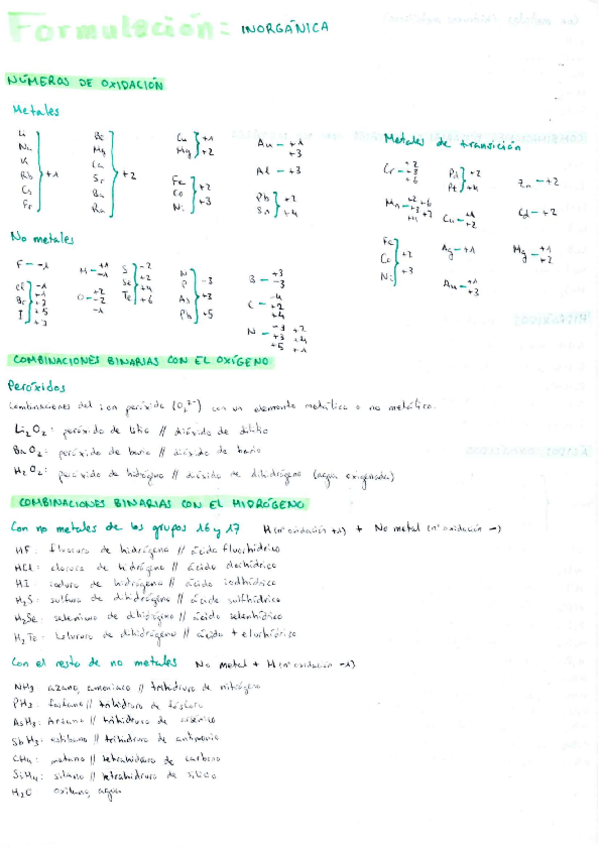 Formulación: INORGÁNICA
NÚMEROS DE OXIDACIÓN
Metales
Li
Na
K
Rb
Cs
Fr
+1
Be
Mg
Ca
Sr
Ba
Ra
+2
Cu
Hg
+1
+2
Fe
Co
Ni
+2
+3
Au - +1
+3
Al - +3
Pb
Sn
+2
+4
Metales de transición
Cr - +2
+3
+6
Pd
Pt
+2
+4
Zn - +2
Mn - +2 +6
+3 +7
+4
Cu - +1
+2
Cd - +2
Fe
Co
Ni
+2
+3
Ag - +1
Hg - +1
+2
Au - +1
+3
No metales
F - -1
Cl
Br
I
-1
+1
+3
+5
+7
H - +1
-1
O - +2
-2
-1
S
Se
Te
-2
+2
+4
+6
N
P
As
-3
+3
+5
B - +3
-3
C - -4
+2
+4
N - -3 +2
+3 +4
+5 +1
COMBINACIONES BINARIAS CON EL OXÍGENO
Peróxidos
Combinaciones del ion peróxido (O₂²⁻) con un elemento metálico o no metálico.
Li₂O₂: peróxido de litio // dióxido de dilitio
BaO₂: peróxido de bario // dióxido de bario
H₂O₂: peróxido de hidrógeno // dióxido de dihidrógeno (agua oxigenada)
COMBINACIONES BINARIAS CON EL HIDRÓGENO
Con no metales de los grupos 16 y 17 H (nº oxidación +1) + No metal (nº oxidación -)
HF: fluoruro de hidrógeno // ácido fluorhídrico
HCl: cloruro de hidrógeno // ácido clorhídrico
HI: ioduro de hidrógeno // ácido iodhídrico
H₂S: sulfuro de dihidrógeno // ácido sulfhídrico
H₂Se: seleniuro de dihidrógeno // ácido selenhídrico
H₂Te: telururo de dihidrógeno // ácido telurhídrico
Con el resto de no metales No metal + H (nº oxidación -1)
NH₃ azano, amoniaco // trihidruro de nitrógeno
PH₃: fosfano // trihidruro de fósforo
AsH₃: Arsano // trihidruro de arsénico
SbH₃: estibano // trihidruro de antimonio
CH₄: metano // tetrahidruro de carbono
SiH₄: silano // tetrahidruro de silicio
H₂O oxidano, agua